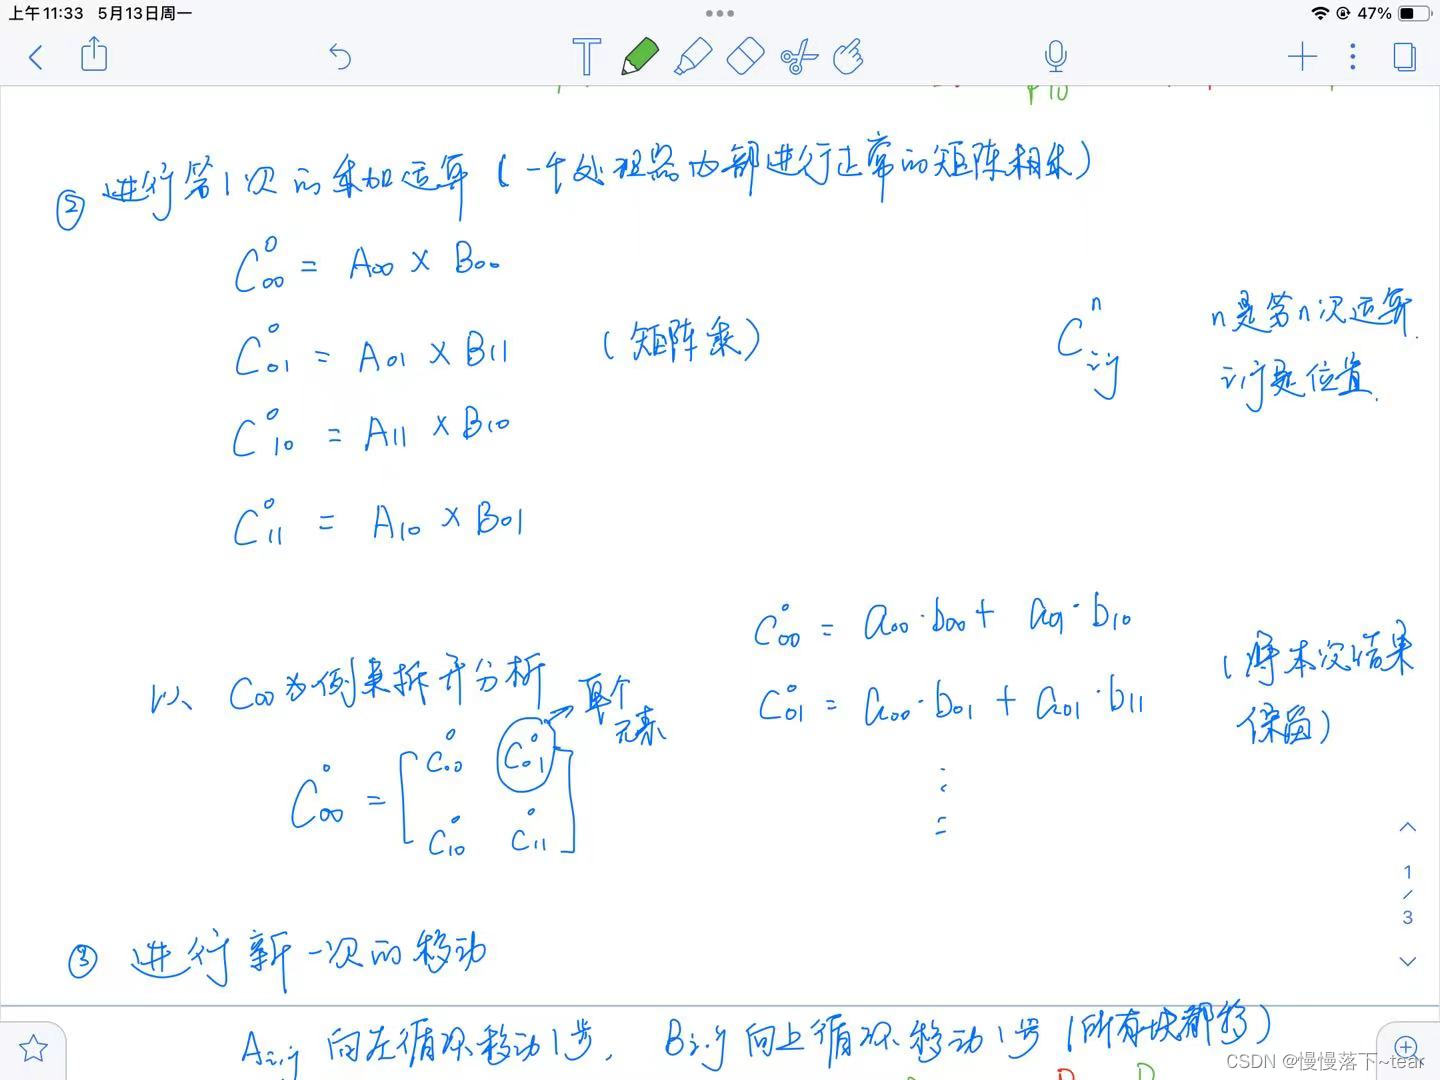 上午11:33 5月13日周一
47%
② 进行第1次的乘加运算(一个处理器内部进行正常的矩阵相乘)
C⁰₀₀ = A₀₀ × B₀₀
C⁰₀₁ = A₀₁ × B₁₁ (矩阵乘)
C⁰₁₀ = A₁₁ × B₁₀
C⁰₁₁ = A₁₀ × B₀₁
Cⁿᵢⱼ
n是第n次运算.
i,j是位置.
以 C₀₀为例来拆开分析
C⁰₀₀ = [
C⁰₀₀ C⁰₀₁
C⁰₁₀ C⁰₁₁
]
→ 单个
元素
C⁰₀₀ = a₀₀·b₀₀ + a₀₁·b₁₀
C⁰₀₁ = a₀₀·b₀₁ + a₀₁·b₁₁
(将本次结果
保留)
③ 进行新一次的移动
Ai,j 向左循环移动1步, Bi,j 向上循环移动1步(所有块都移)
1
/
3
CSDN @慢慢落下~tear